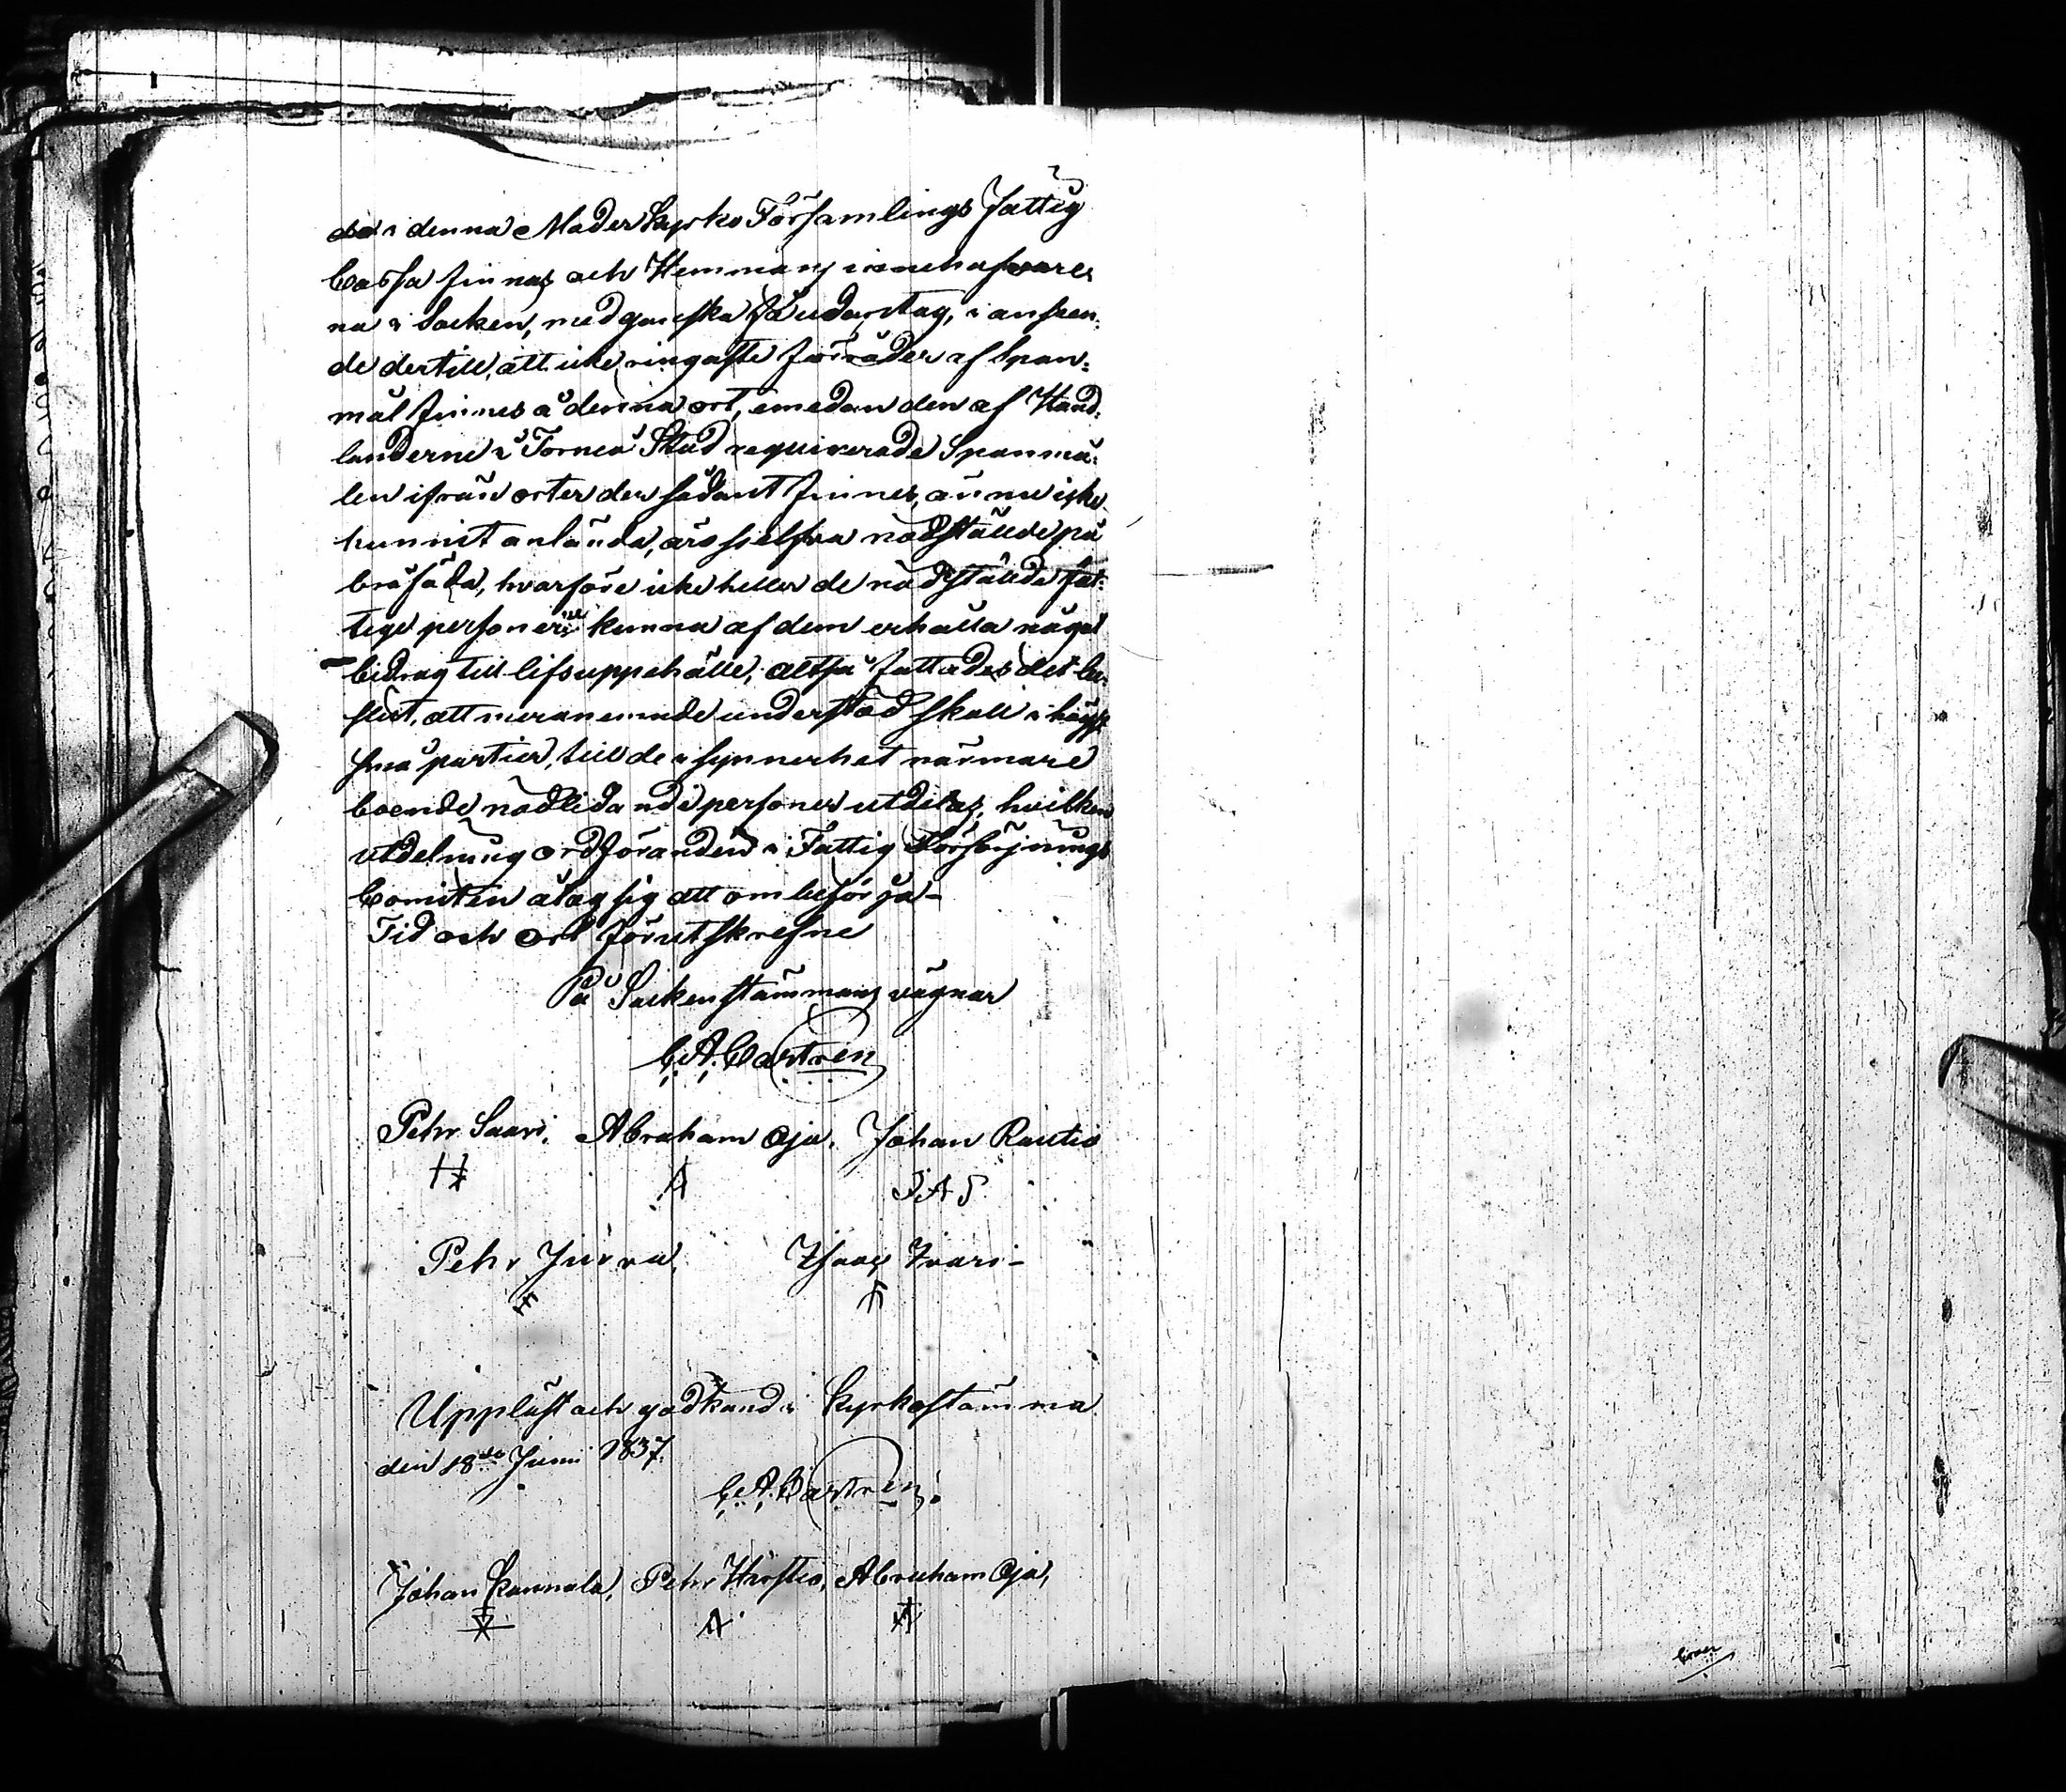 de i denna Moderkyrko Församlings Fattig
Cassa finnas och Hemmans innehafvare
na i Socken, med ganska få undantag, i anseen:
de dertill, att icke ringaste förråder af Span:
mål finnes å denna ort, emedan den af Hand:
landerne i Torneå Stad requirerade Spanmå:
len ifrån orter der sådant finnes, ännu icke
hunnit anlända, äro sjelfva nödstälde på
brösäda, hvarföre icke heller de nödstälda fat:
tige personer kunna af dem erhålla något
bidrag till lifsuppehälle; altså fattades det be:
slut, att meranemnde understöd skall i högst
små partier, till de i synnerhet närmare
boende nödlidande personer utdelas, hvilken
utdelning ordföranden i Fattig Försörjnings
Comitén åtog sig att ombesörja -
Tid och ort förutskrefne
På Sockenstämmans vägnar
C. A. Castren
Pehr Saari. Abraham Oja. Johan Rautio
Pehr Juvva. Isaac Ivari -
Uppläst och godkänd i Kyrkostämma
den 18de Junii 1837.
C. A. Castren.
Johan Kannala, Pehr Harstio, Abraham Oja,